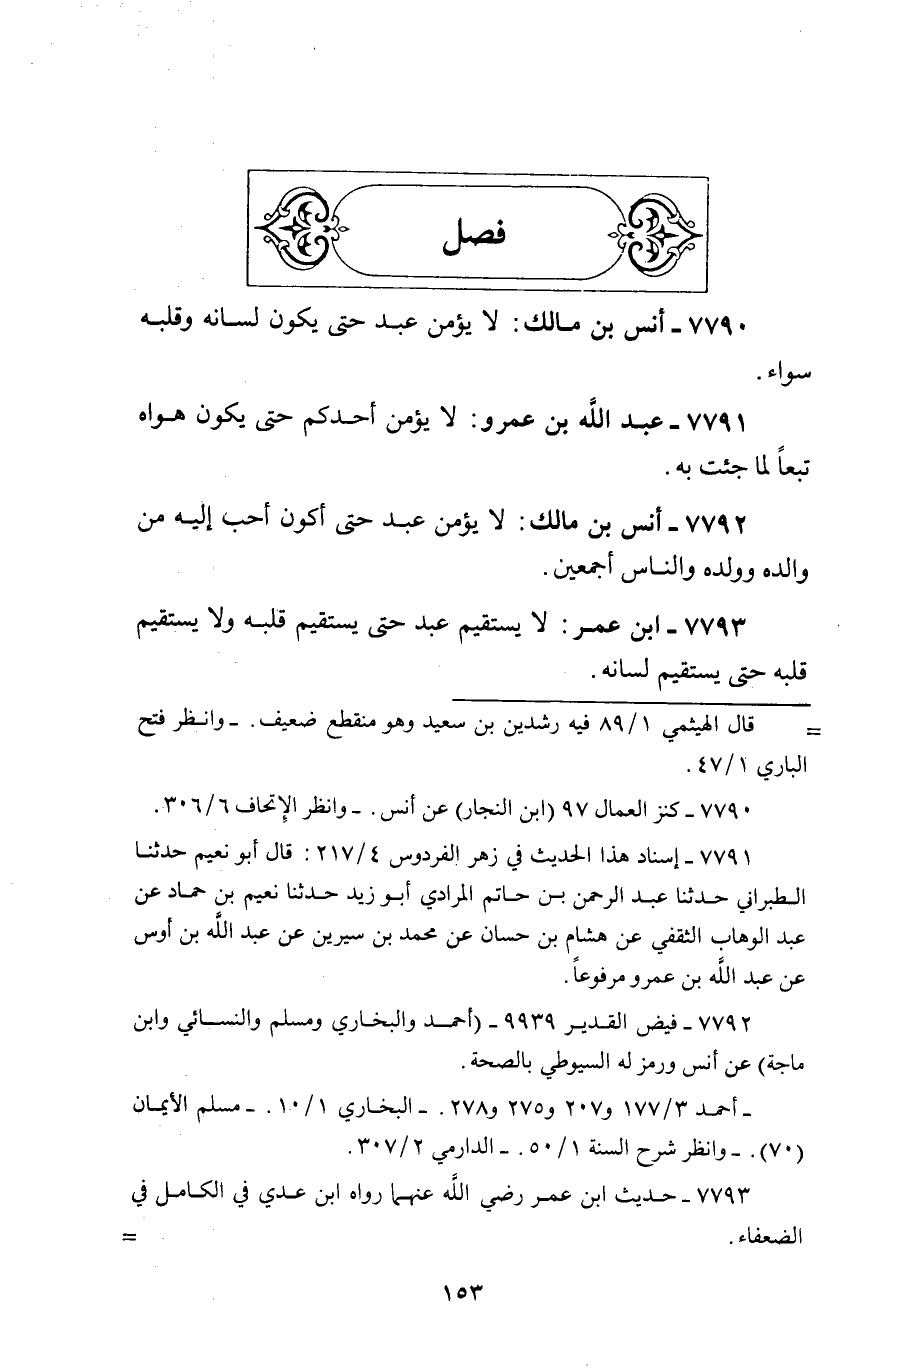 فصل
٧٧٩٠ ـ أنس بن مالك : لا يؤمن عبد حتى يكون لسانه وقلبه
سواء .
٧٧٩١ ـ عبد اللَّه بن عمرو : لا يؤمن أحدكم حتى يكون هواه
تبعاً لما جئت به .
٧٧٩٢ ـ أنس بن مالك : لا يؤمن عبد حتى أكون أحب إليه من
والده وولده والناس أجمعين .
٧٧٩٣ ـ ابن عمر : لا يستقيم عبد حتى يستقيم قلبه ولا يستقيم
قلبه حتى يستقيم لسانه .
= قال الهيثمي ٨٩/١ فيه رشدين بن سعيد وهو منقطع ضعيف . ـ وانظر فتح
الباري ٤٧/١ .
٧٧٩٠ ـ كنز العمال ٩٧ (ابن النجار) عن أنس . ـ وانظر الإتحاف ٣٠٦/٦ .
٧٧٩١ ـ إسناد هذا الحديث في زهر الفردوس ٢١٧/٤ : قال أبو نعيم حدثنا
الطبراني حدثنا عبد الرحمن بن حاتم المرادي أبو زيد حدثنا نعيم بن حماد عن
عبد الوهاب الثقفي عن هشام بن حسان عن محمد بن سيرين عن عبد اللَّه بن أوس
عن عبد اللَّه بن عمرو مرفوعاً .
٧٧٩٢ ـ فيض القدير ٩٩٣٩ ـ (أحمد والبخاري ومسلم والنسائي وابن
ماجة) عن أنس ورمز له السيوطي بالصحة .
ـ أحمد ١٧٧/٣ و٢٠٧ و٢٧٥ و٢٧٨ . ـ البخاري ١٠/١ . ـ مسلم الأيمان
(٧٠) . ـ وانظر شرح السنة ٥٠/١ . ـ الدارمي ٣٠٧/٢ .
٧٧٩٣ ـ حديث ابن عمر رضي اللَّه عنهما رواه ابن عدي في الكامل في
الضعفاء . =
١٥٣